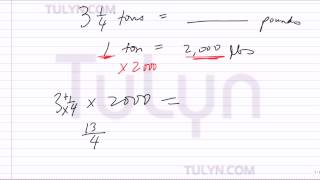 TULYN.COM
3 1/4 tons = ______ pounds
1 ton = 2,000 lbs
x 2000
Tulyn
3 + 1/4 x x 2000 =
13/4
TULYN.COM